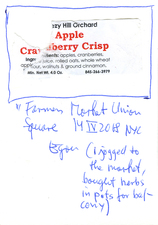 zy Hill Orchard
Apple
Cra berry Crisp
Ingr dients: apples, cranberries,
juice, rolled oats, whole wheat
flour, walnuts & ground cinnamon.
Min. Net Wt. 4.0 Oz. 845-266-3979
"Farmers Market Union
Square 14 IV 2018 NYC
(I jogged to
the market,
bought herbs
in pots for bal-
cony)